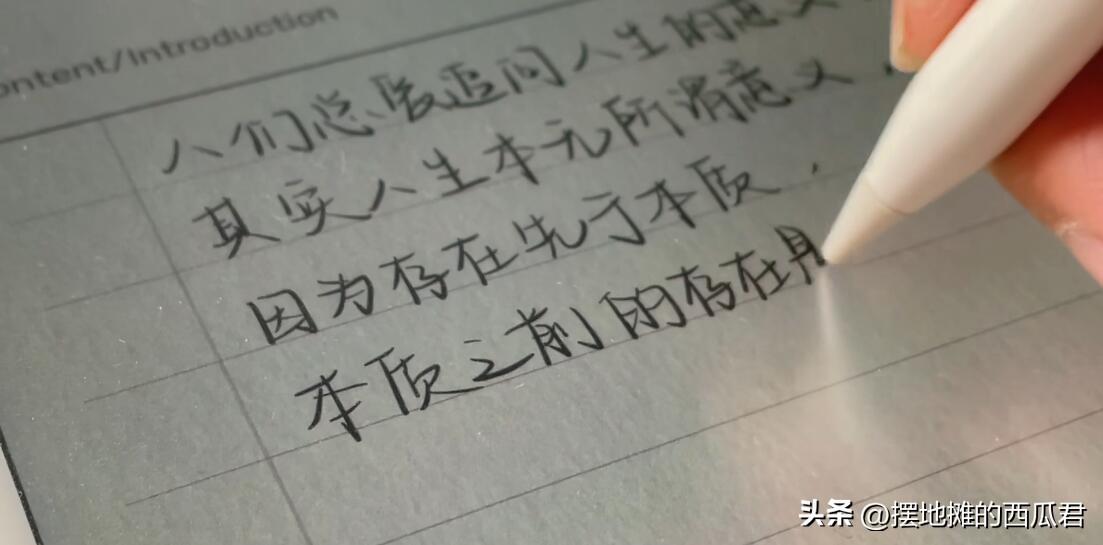 ontent/Introduction
人们总爱追问人生的意义,
其实人生本无所谓意义,
因为存在先于本质,
本质之前的存在是
头条 @摆地摊的西瓜君